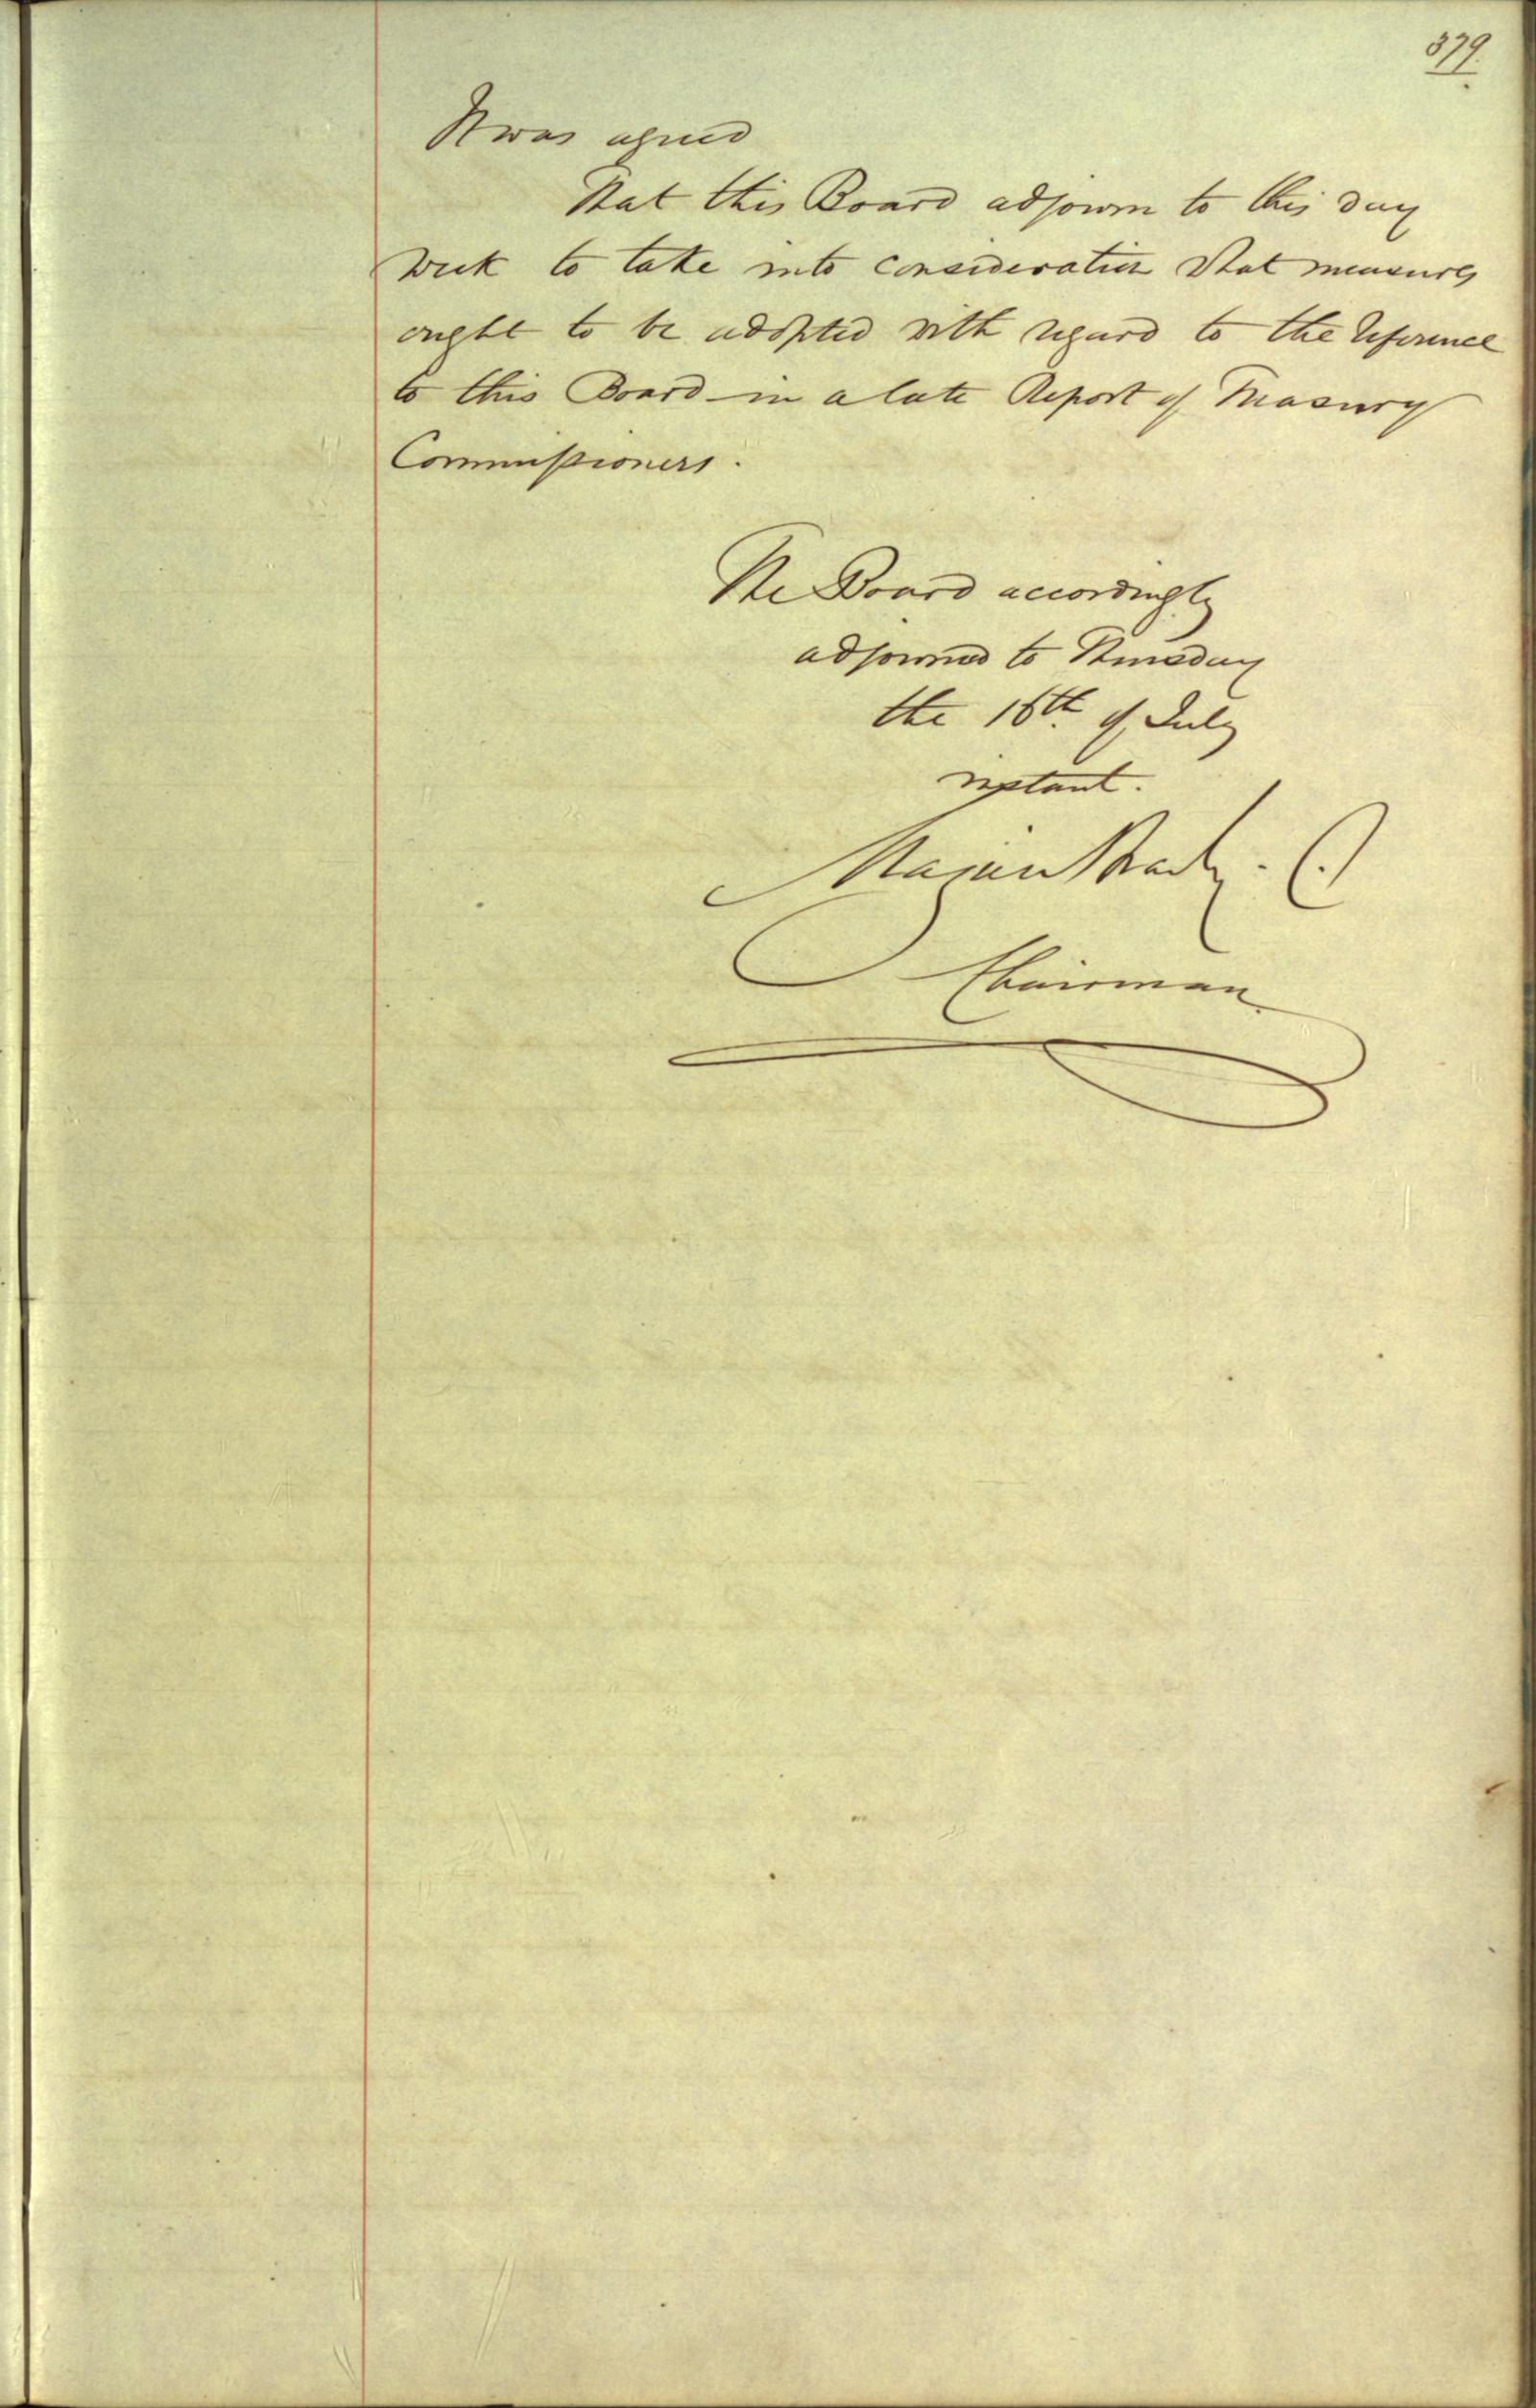 379.
It was agreed
That this Board adjourn to this day
week to take into consideration what measures
ought to be adopted with regard to the reference
to this Board in a late Report of Treasury
Commissioners.
The Board accordingly
adjourned to Thursday
the 16th of July
instant.
Chairman